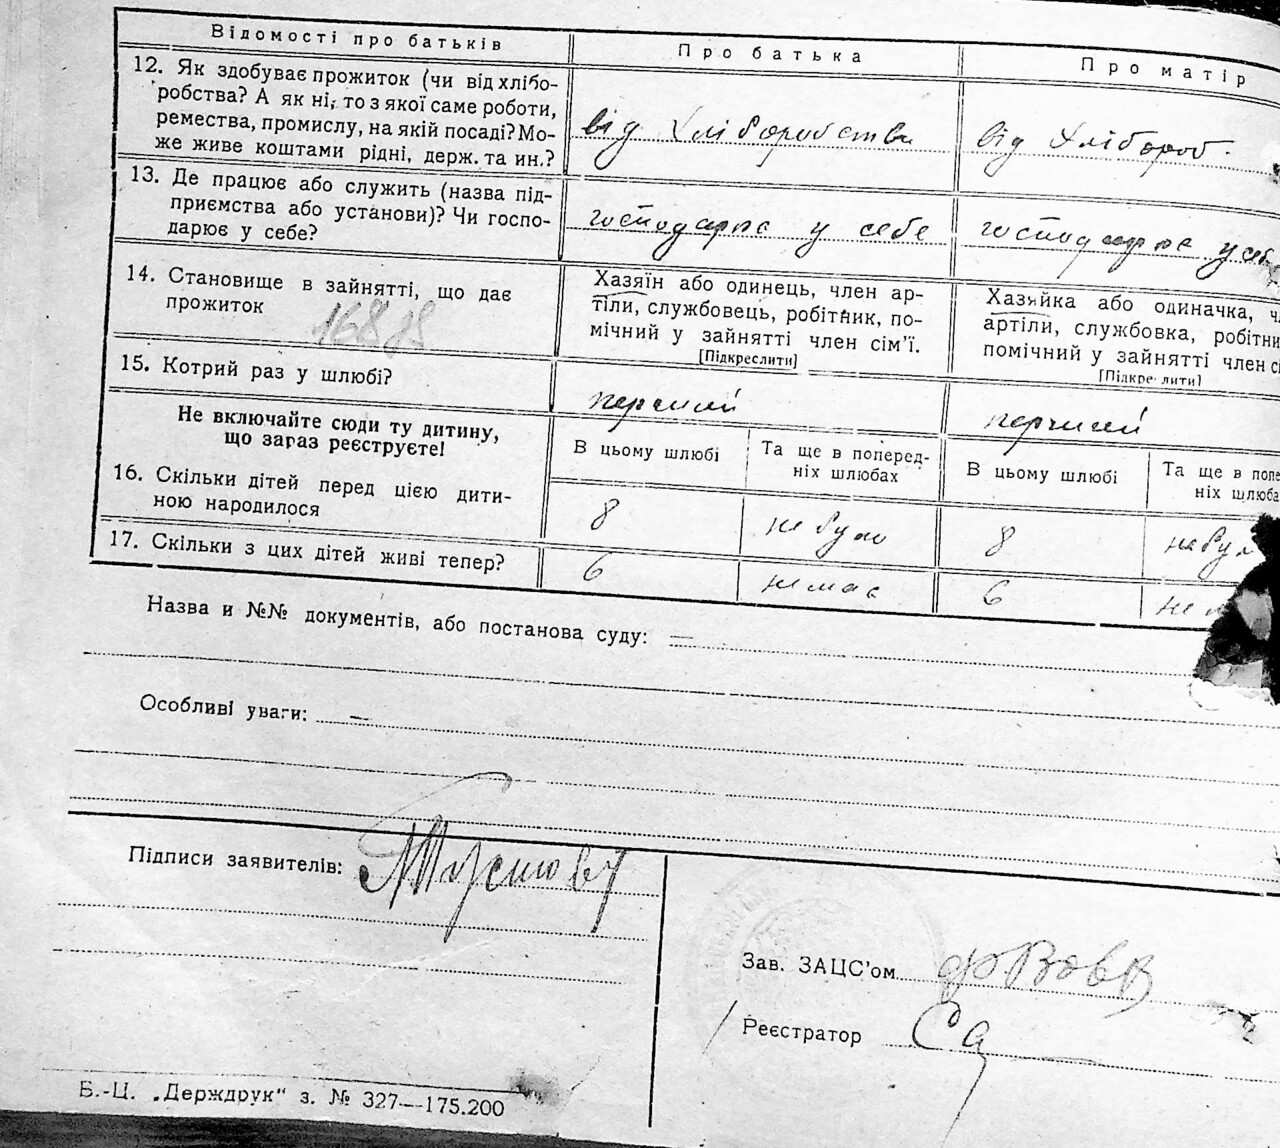 Відомості про батьків
Про батька
Про матір
12. Як здобуває прожиток (чи від хлібо-
робства? А як ні, то з якої саме роботи,
ремества, промислу, на якій посаді? Мо-
же живе коштами рідні, держ. та ин.?
від хліборобства
від хлібороб.
13. Де працює або служить (назва під-
приємства або установи)? Чи госпо-
дарює у себе?
господарює у себе
господарює у себе
14. Становище в зайнятті, що дає
прожиток
Хазяїн або одинець, член ар-
тіли, службовець, робітник, по-
мічний у зайнятті член сім'ї.
[Підкреслити]
Хазяйка або одиначка, чл
артіли, службовка, робітни
помічний у зайнятті член сі
[Підкреслити]
15. Котрий раз у шлюбі?
перший
перший
Не включайте сюди ту дитину,
що зараз реєструєте!
В цьому шлюбі
Та ще в поперед-
ніх шлюбах
В цьому шлюбі
Та ще в попе
ніх шлюба
16. Скільки дітей перед цією дити-
ною народилося
8
не було
8
не бул
17. Скільки з цих дітей живі тепер?
6
немає
6
не м
Назва и №№ документів, або постанова суду: —
Особливі уваги: —
Підписи заявителів:
Зав. ЗАЦС'ом
Реєстратор
Б.-Ц. „Держдрук" з. № 327—175.200